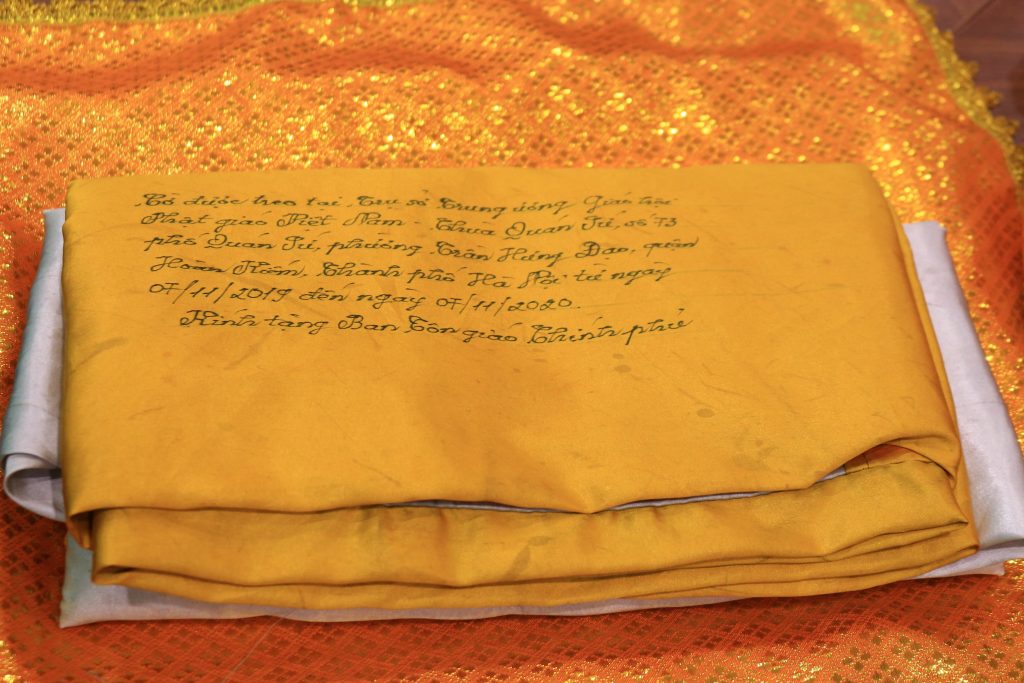 Cờ được treo tại Trụ sở Trung ương Giáo hội
Phật giáo Việt Nam - Chùa Quán Sứ, số 73
phố Quán Sứ, phường Trần Hưng Đạo, quận
Hoàn Kiếm, Thành phố Hà Nội từ ngày
07/11/2019 đến ngày 07/11/2020.
Kính tặng Ban Tôn giáo Chính phủ